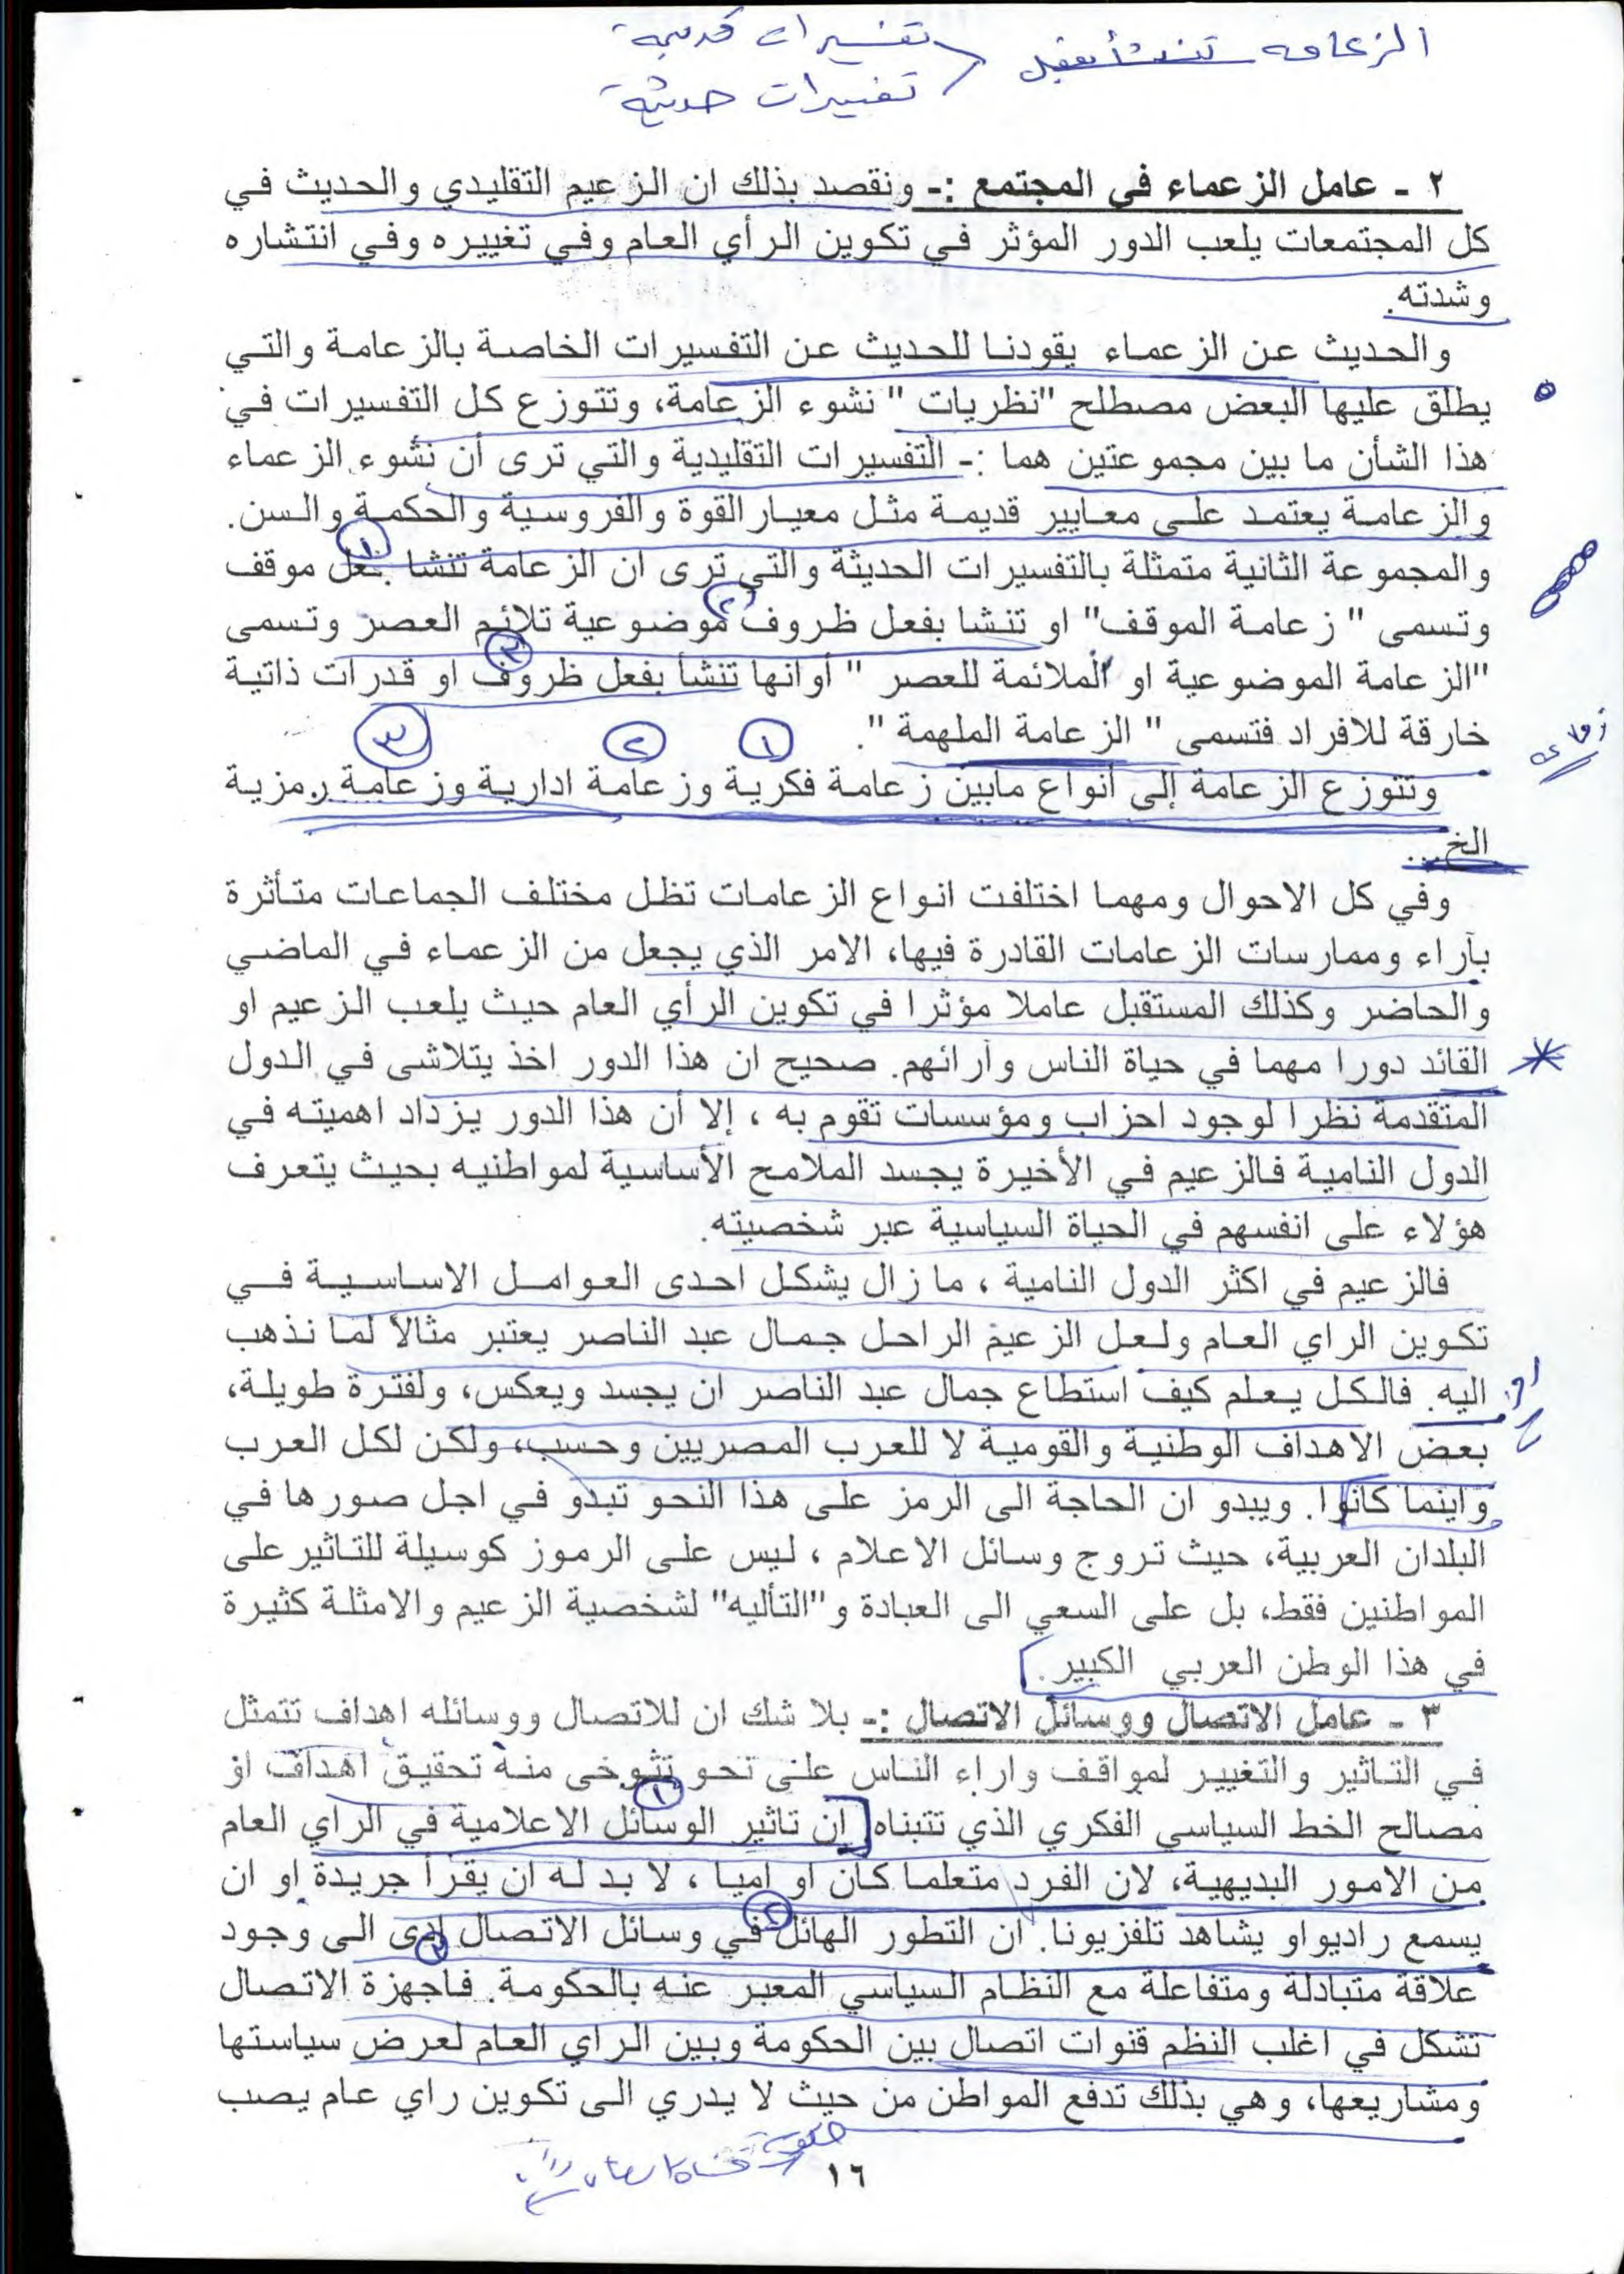 الزعامة تنشأ بفعل
تفسيرات قديمة
تفسيرات حديثة
٢ - عامل الزعماء في المجتمع :- ونقصد بذلك ان الزعيم التقليدي والحديث في
كل المجتمعات يلعب الدور المؤثر في تكوين الرأي العام وفي تغييره وفي انتشاره
وشدته.
والحديث عن الزعماء يقودنا للحديث عن التفسيرات الخاصة بالزعامة والتي
يطلق عليها البعض مصطلح "نظريات " نشوء الزعامة، وتتوزع كل التفسيرات في
هذا الشأن ما بين مجموعتين هما :- التفسيرات التقليدية والتي ترى أن نشوء الزعماء
والزعامة يعتمد على معايير قديمة مثل معيار القوة والفروسية والحكمة والسن.
والمجموعة الثانية متمثلة بالتفسيرات الحديثة والتي ترى ان الزعامة تنشا بفعل موقف
وتسمى " زعامة الموقف" او تنشا بفعل ظروف موضوعية تلائم العصر وتسمى
"الزعامة الموضوعية او الملائمة للعصر " أو انها تنشأ بفعل ظروف او قدرات ذاتية
خارقة للافراد فتسمى " الزعامة الملهمة ".
١ ٢ ٣
وتتوزع الزعامة إلى أنواع مابين زعامة فكرية وزعامة ادارية وزعامة رمزية
الخ...
وفي كل الاحوال ومهما اختلفت انواع الزعامات تظل مختلف الجماعات متأثرة
بآراء وممارسات الزعامات القادرة فيها، الامر الذي يجعل من الزعماء في الماضي
والحاضر وكذلك المستقبل عاملا مؤثرا في تكوين الرأي العام حيث يلعب الزعيم او
القائد دورا مهما في حياة الناس وآرائهم. صحيح ان هذا الدور اخذ يتلاشى في الدول
المتقدمة نظرا لوجود احزاب ومؤسسات تقوم به ، إلا أن هذا الدور يزداد اهميته في
الدول النامية فالزعيم في الأخيرة يجسد الملامح الأساسية لمواطنيه بحيث يتعرف
هؤلاء على انفسهم في الحياة السياسية عبر شخصيته.
فالزعيم في اكثر الدول النامية ، ما زال يشكل احدى العوامل الاساسية في
تكوين الراي العام ولعل الزعيم الراحل جمال عبد الناصر يعتبر مثالاً لما نذهب
اليه. فالكل يعلم كيف استطاع جمال عبد الناصر ان يجسد ويعكس، ولفترة طويلة،
بعض الاهداف الوطنية والقومية لا للعرب المصريين وحسب، ولكن لكل العرب
واينما كانوا. ويبدو ان الحاجة الى الرمز على هذا النحو تبدو في اجل صورها في
البلدان العربية، حيث تروج وسائل الاعلام ، ليس على الرموز كوسيلة للتاثير على
المواطنين فقط، بل على السعي الى العبادة و"التأليه" لشخصية الزعيم والامثلة كثيرة
في هذا الوطن العربي الكبير.
٣ - عامل الاتصال ووسائل الاتصال :- بلا شك ان للاتصال ووسائله اهداف تتمثل
في التاثير والتغيير لمواقف واراء الناس على نحو تتوخى منه تحقيق اهداف او
مصالح الخط السياسي الفكري الذي تتبناه. ان تاثير الوسائل الاعلامية في الراي العام
من الامور البديهية، لان الفرد متعلما كان او اميا ، لا بد له ان يقرأ جريدة او ان
يسمع راديو او يشاهد تلفزيونا. ان التطور الهائل في وسائل الاتصال ادى الى وجود
علاقة متبادلة ومتفاعلة مع النظام السياسي المعبر عنه بالحكومة. فاجهزة الاتصال
تشكل في اغلب النظم قنوات اتصال بين الحكومة وبين الراي العام لعرض سياستها
ومشاريعها، وهي بذلك تدفع المواطن من حيث لا يدري الى تكوين راي عام يصب
١٦